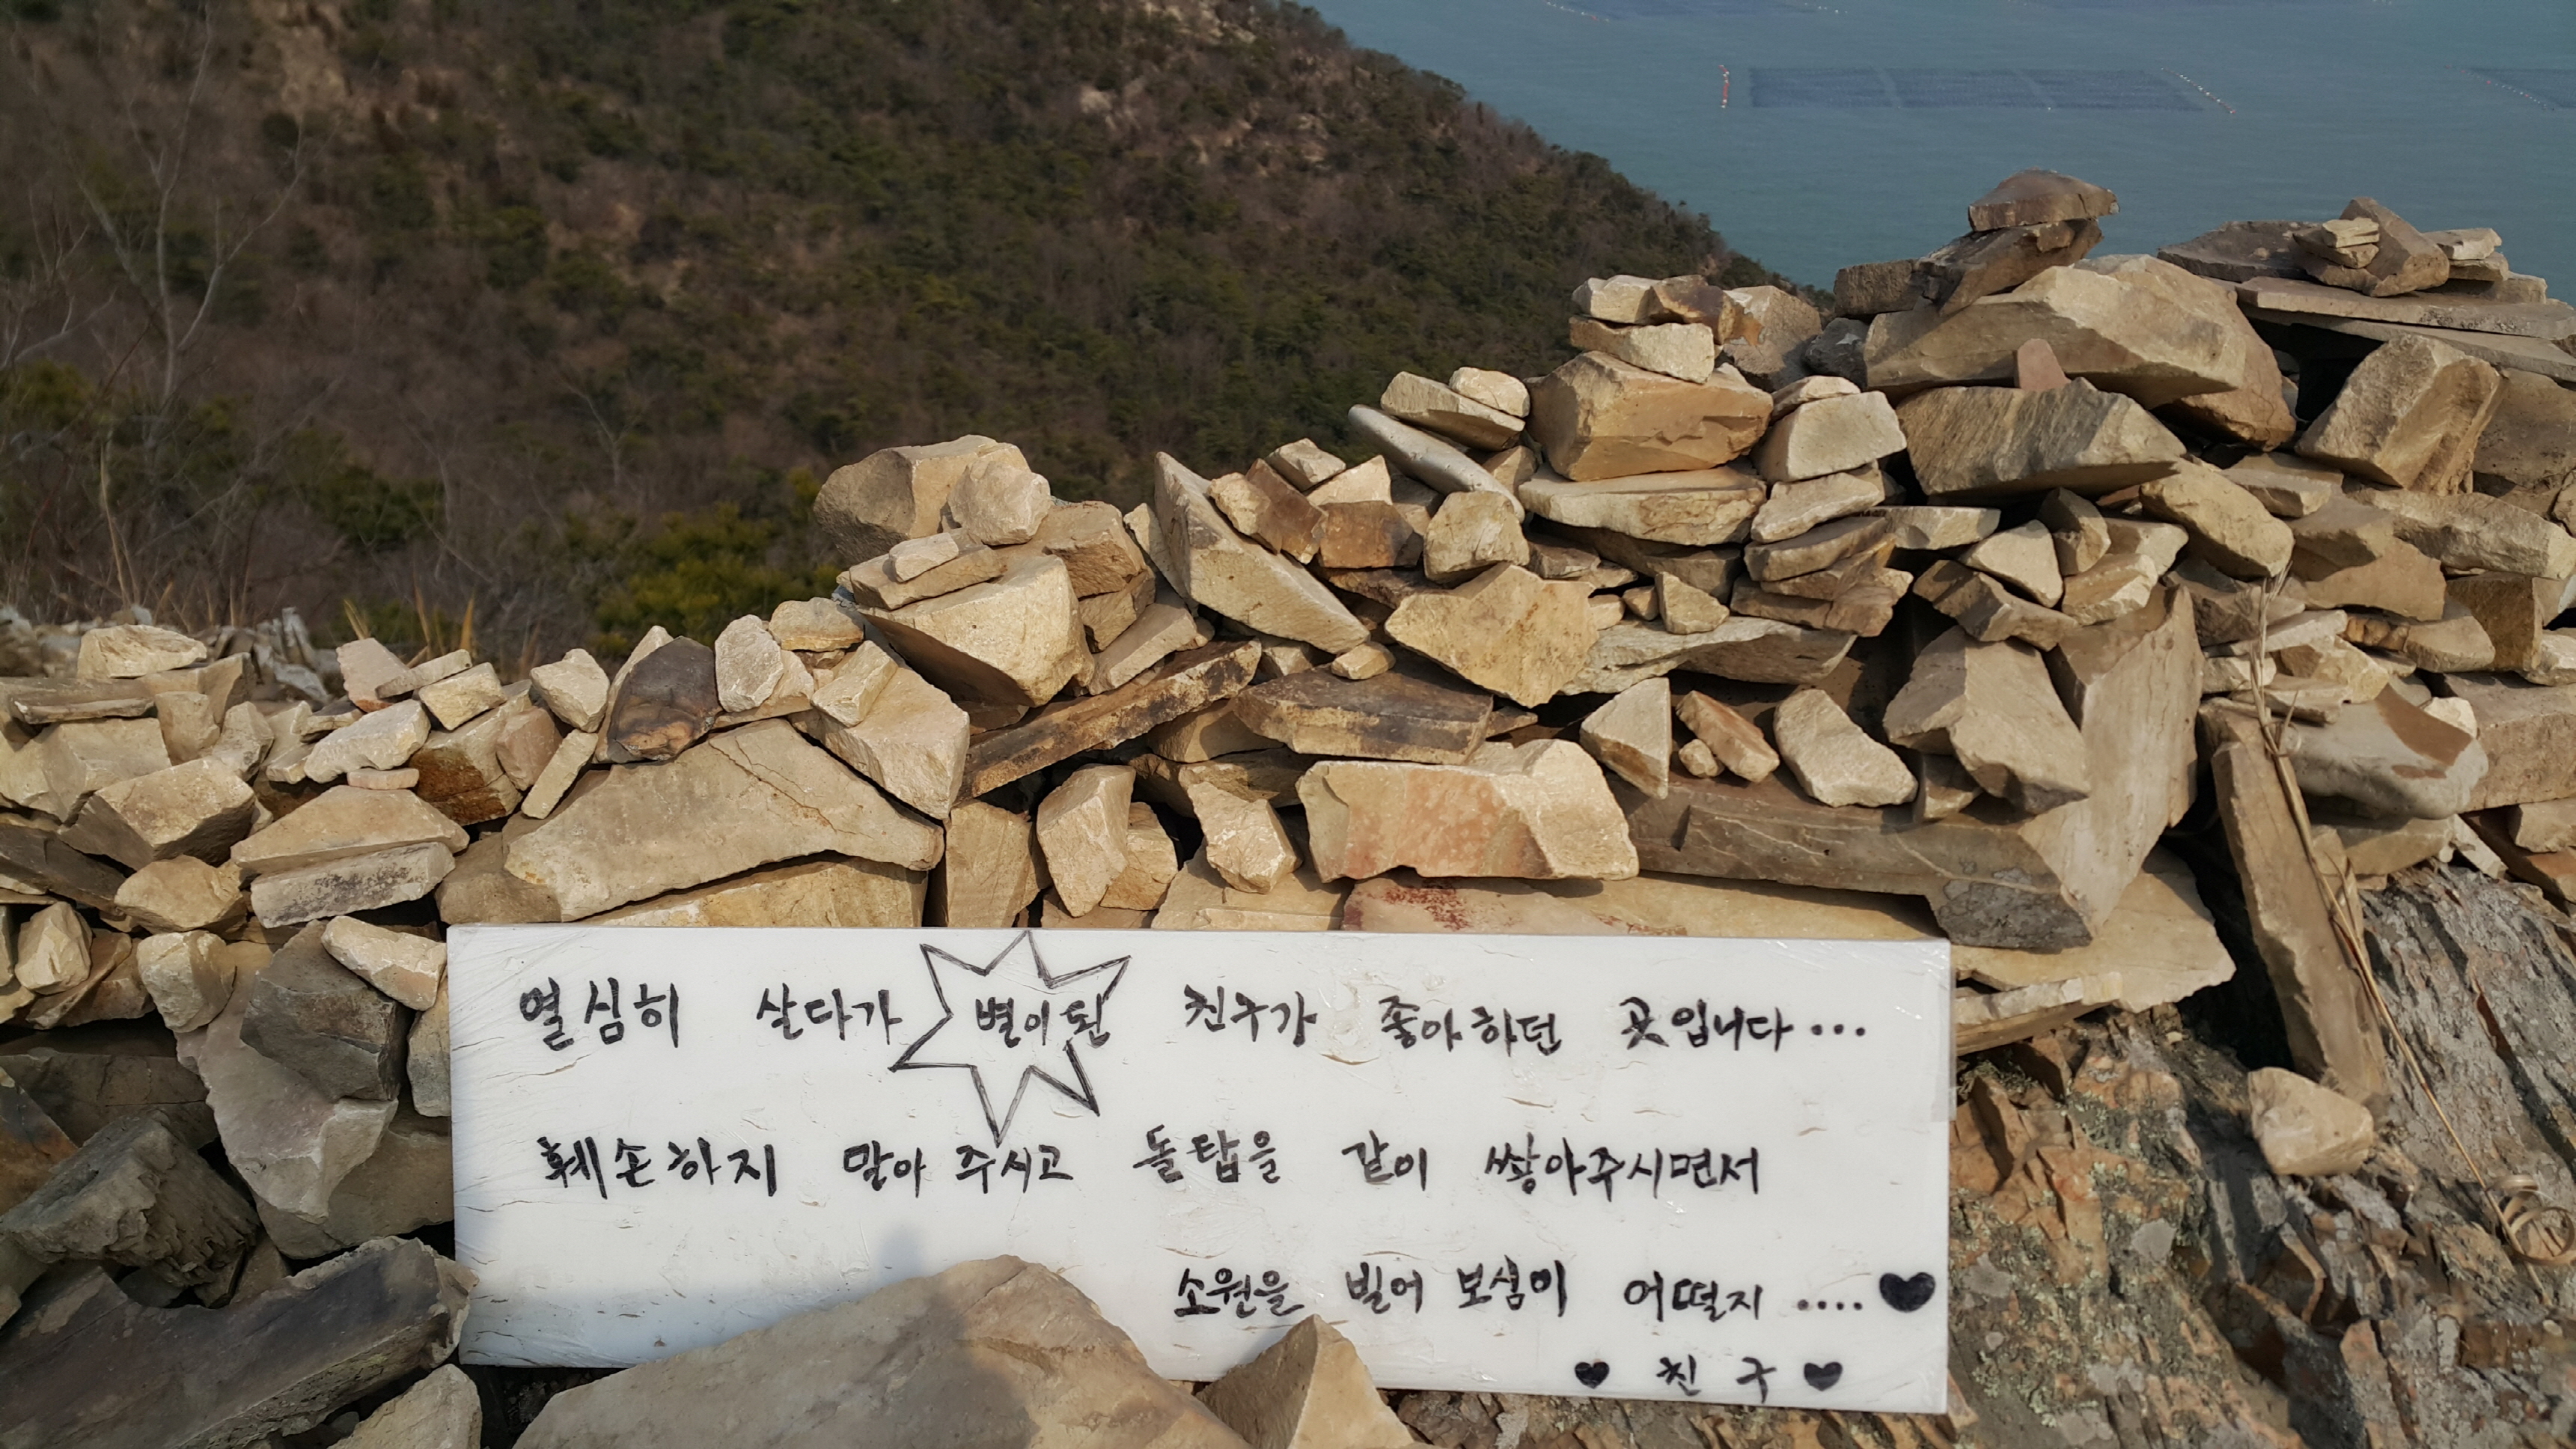 열심히 살다가 별이된 친구가 좋아하던 곳입니다...
훼손하지 말아 주시고 돌탑을 같이 쌓아주시면서
소원을 빌어 보심이 어떨지 ....♥
♥ 친 구 ♥